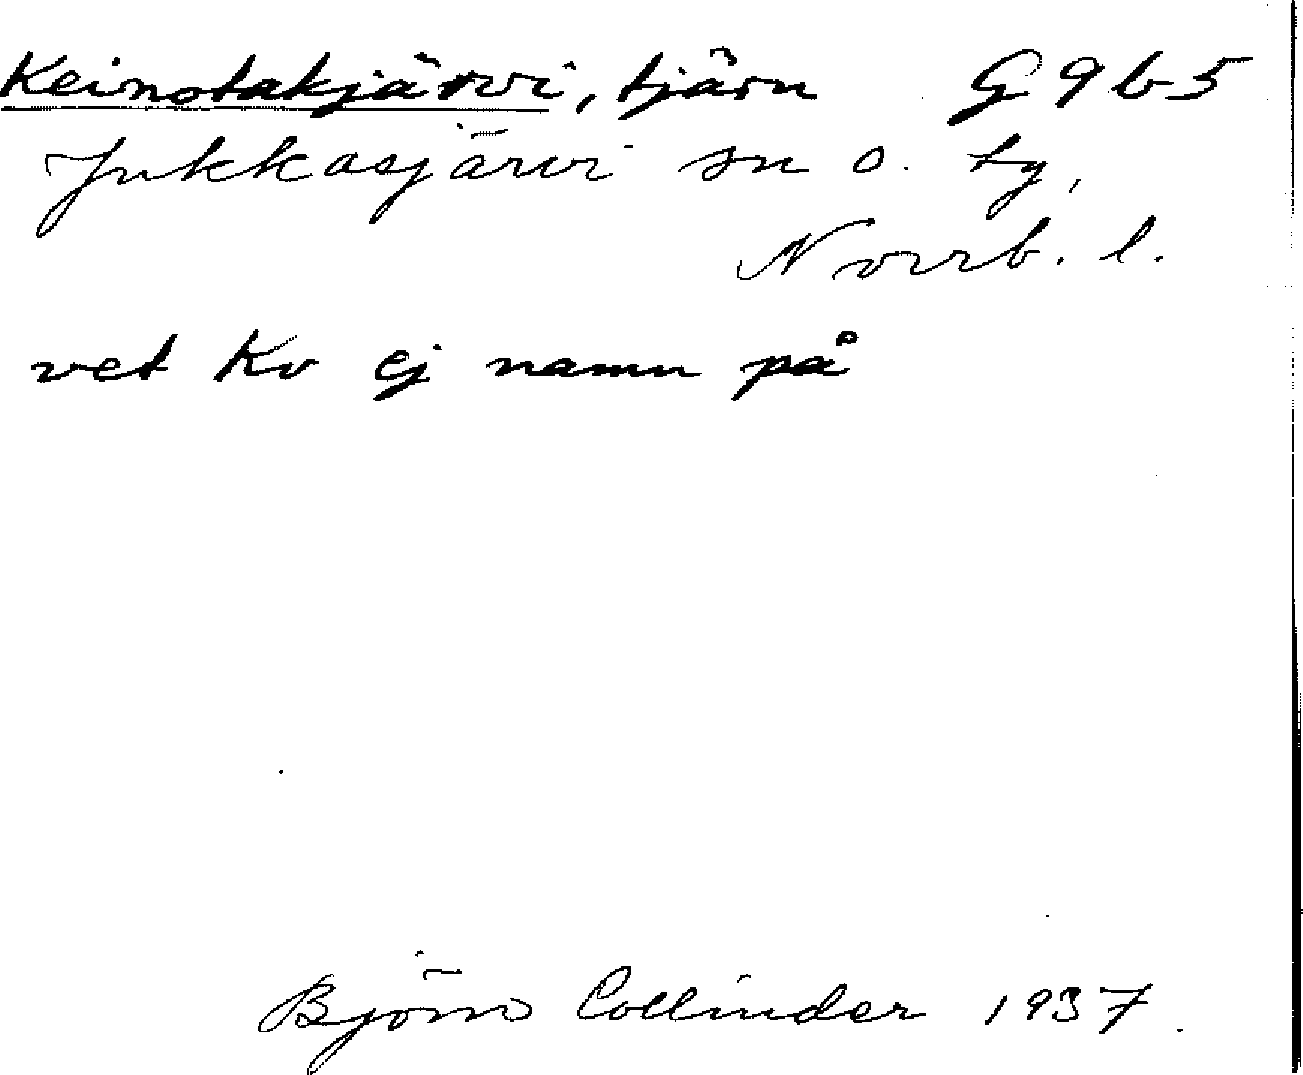 Keinotakjärvi, tjärn G 9 b 5
Jukkasjärvi sn o. tg,
Norrb. l.
vet Kv ej namn på
Björn Collinder 1937.